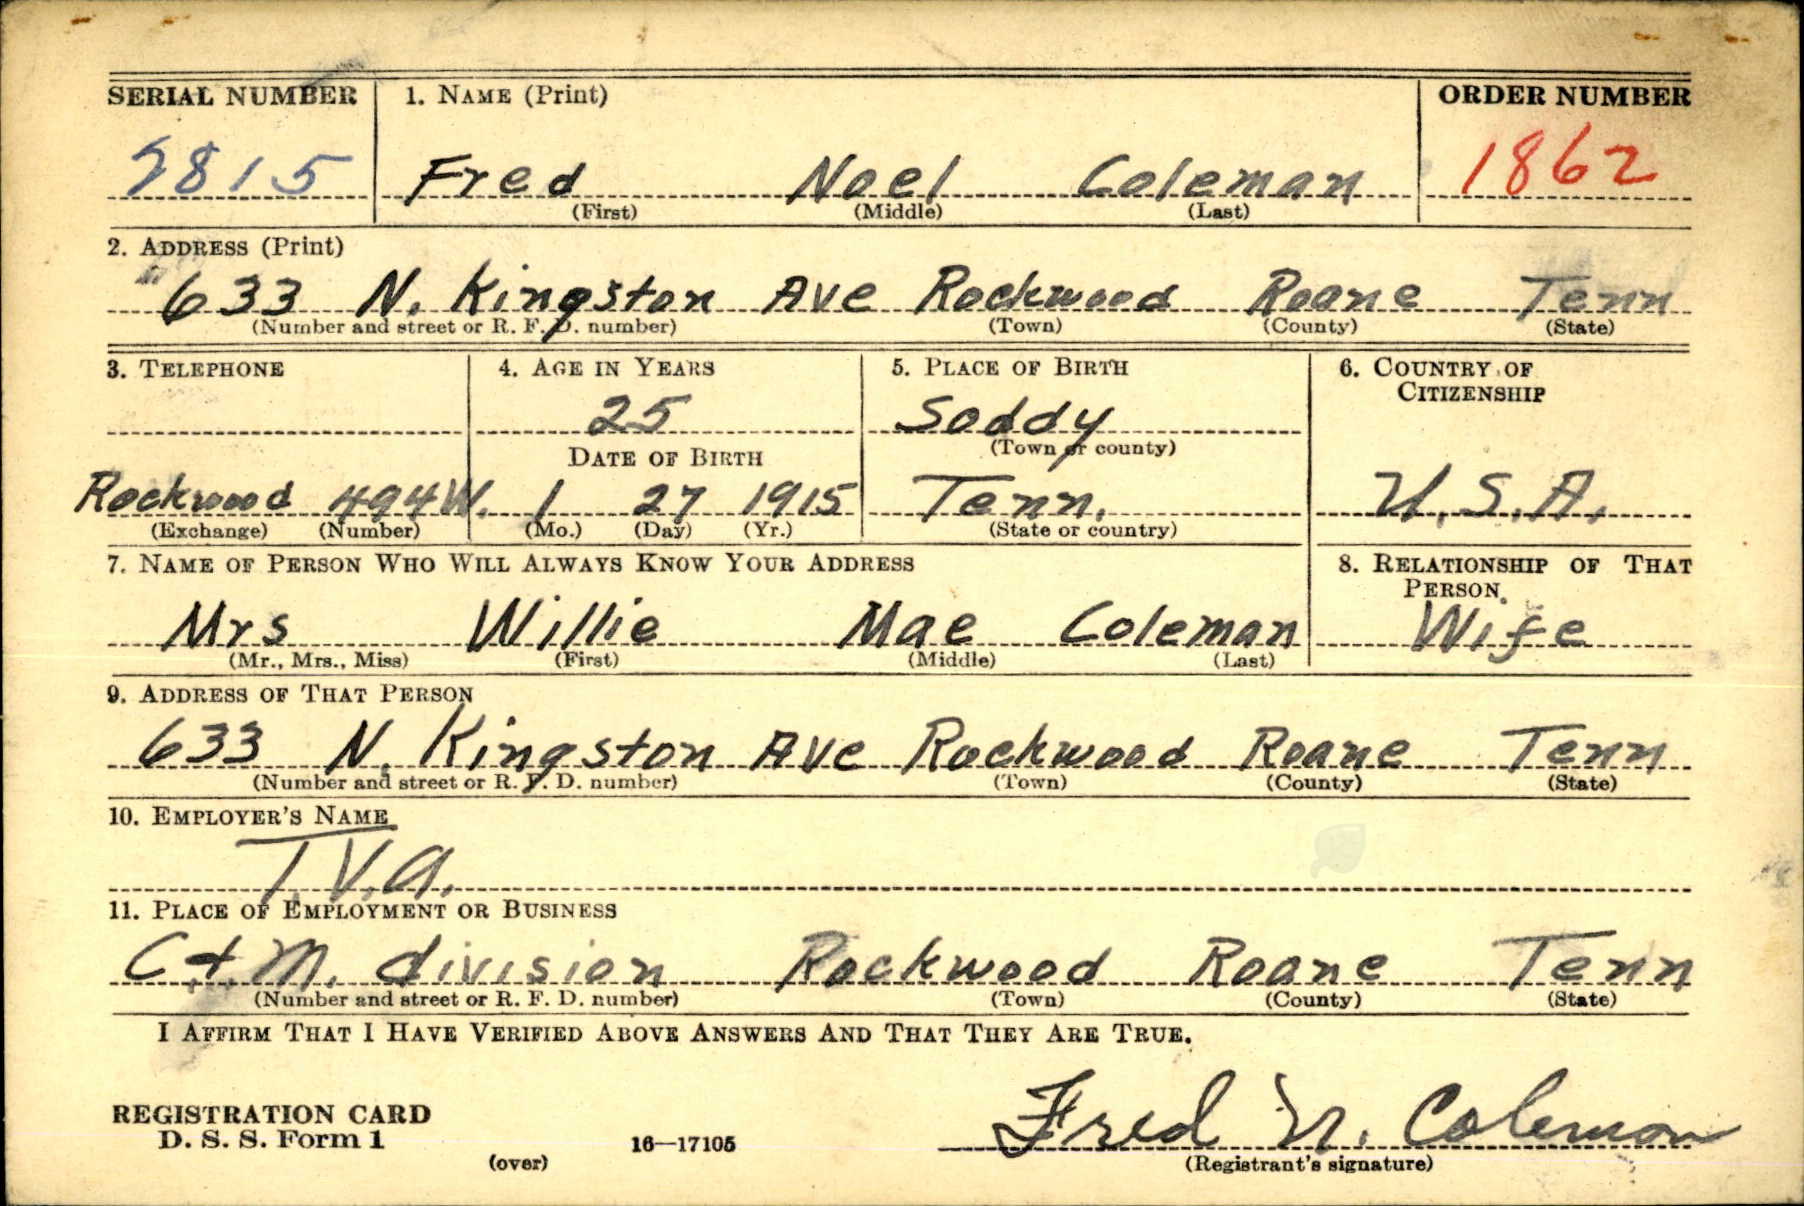 SERIAL NUMBER 1. NAME (Print) ORDER NUMBER
2815 Fred Noel Coleman 1862
(First) (Middle) (Last)
2. ADDRESS (Print)
633 N. Kingston Ave Rockwood Roane Tenn
(Number and street or R. F. D. number) (Town) (County) (State)
3. TELEPHONE 4. AGE IN YEARS 5. PLACE OF BIRTH 6. COUNTRY OF
CITIZENSHIP
25 Soddy
DATE OF BIRTH (Town or county)
Rockwood 494W. 1 27 1915 Tenn. U.S.A.
(Exchange) (Number) (Mo.) (Day) (Yr.) (State or country)
7. NAME OF PERSON WHO WILL ALWAYS KNOW YOUR ADDRESS 8. RELATIONSHIP OF THAT
PERSON
Mrs Willie Mae Coleman Wife
(Mr., Mrs., Miss) (First) (Middle) (Last)
9. ADDRESS OF THAT PERSON
633 N. Kingston Ave Rockwood Roane Tenn
(Number and street or R. F. D. number) (Town) (County) (State)
10. EMPLOYER'S NAME
T.V.A.
11. PLACE OF EMPLOYMENT OR BUSINESS
C + M. division Rockwood Roane Tenn
(Number and street or R. F. D. number) (Town) (County) (State)
I AFFIRM THAT I HAVE VERIFIED ABOVE ANSWERS AND THAT THEY ARE TRUE.
REGISTRATION CARD
D. S. S. Form 1 16—17105 Fred N. Coleman
(over) (Registrant's signature)